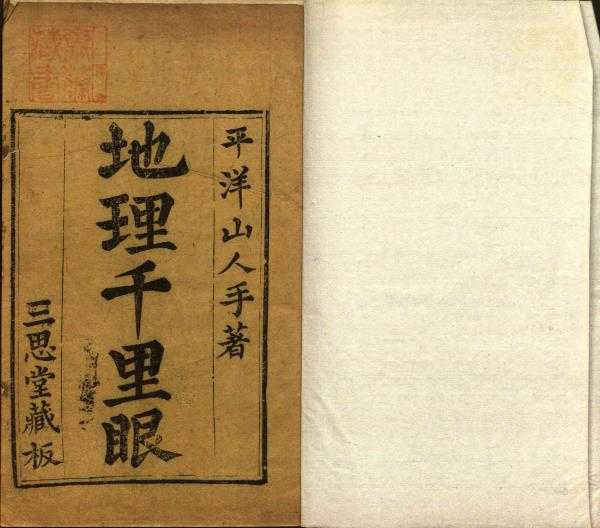 平洋山人手著
地理千里眼
三思堂藏板